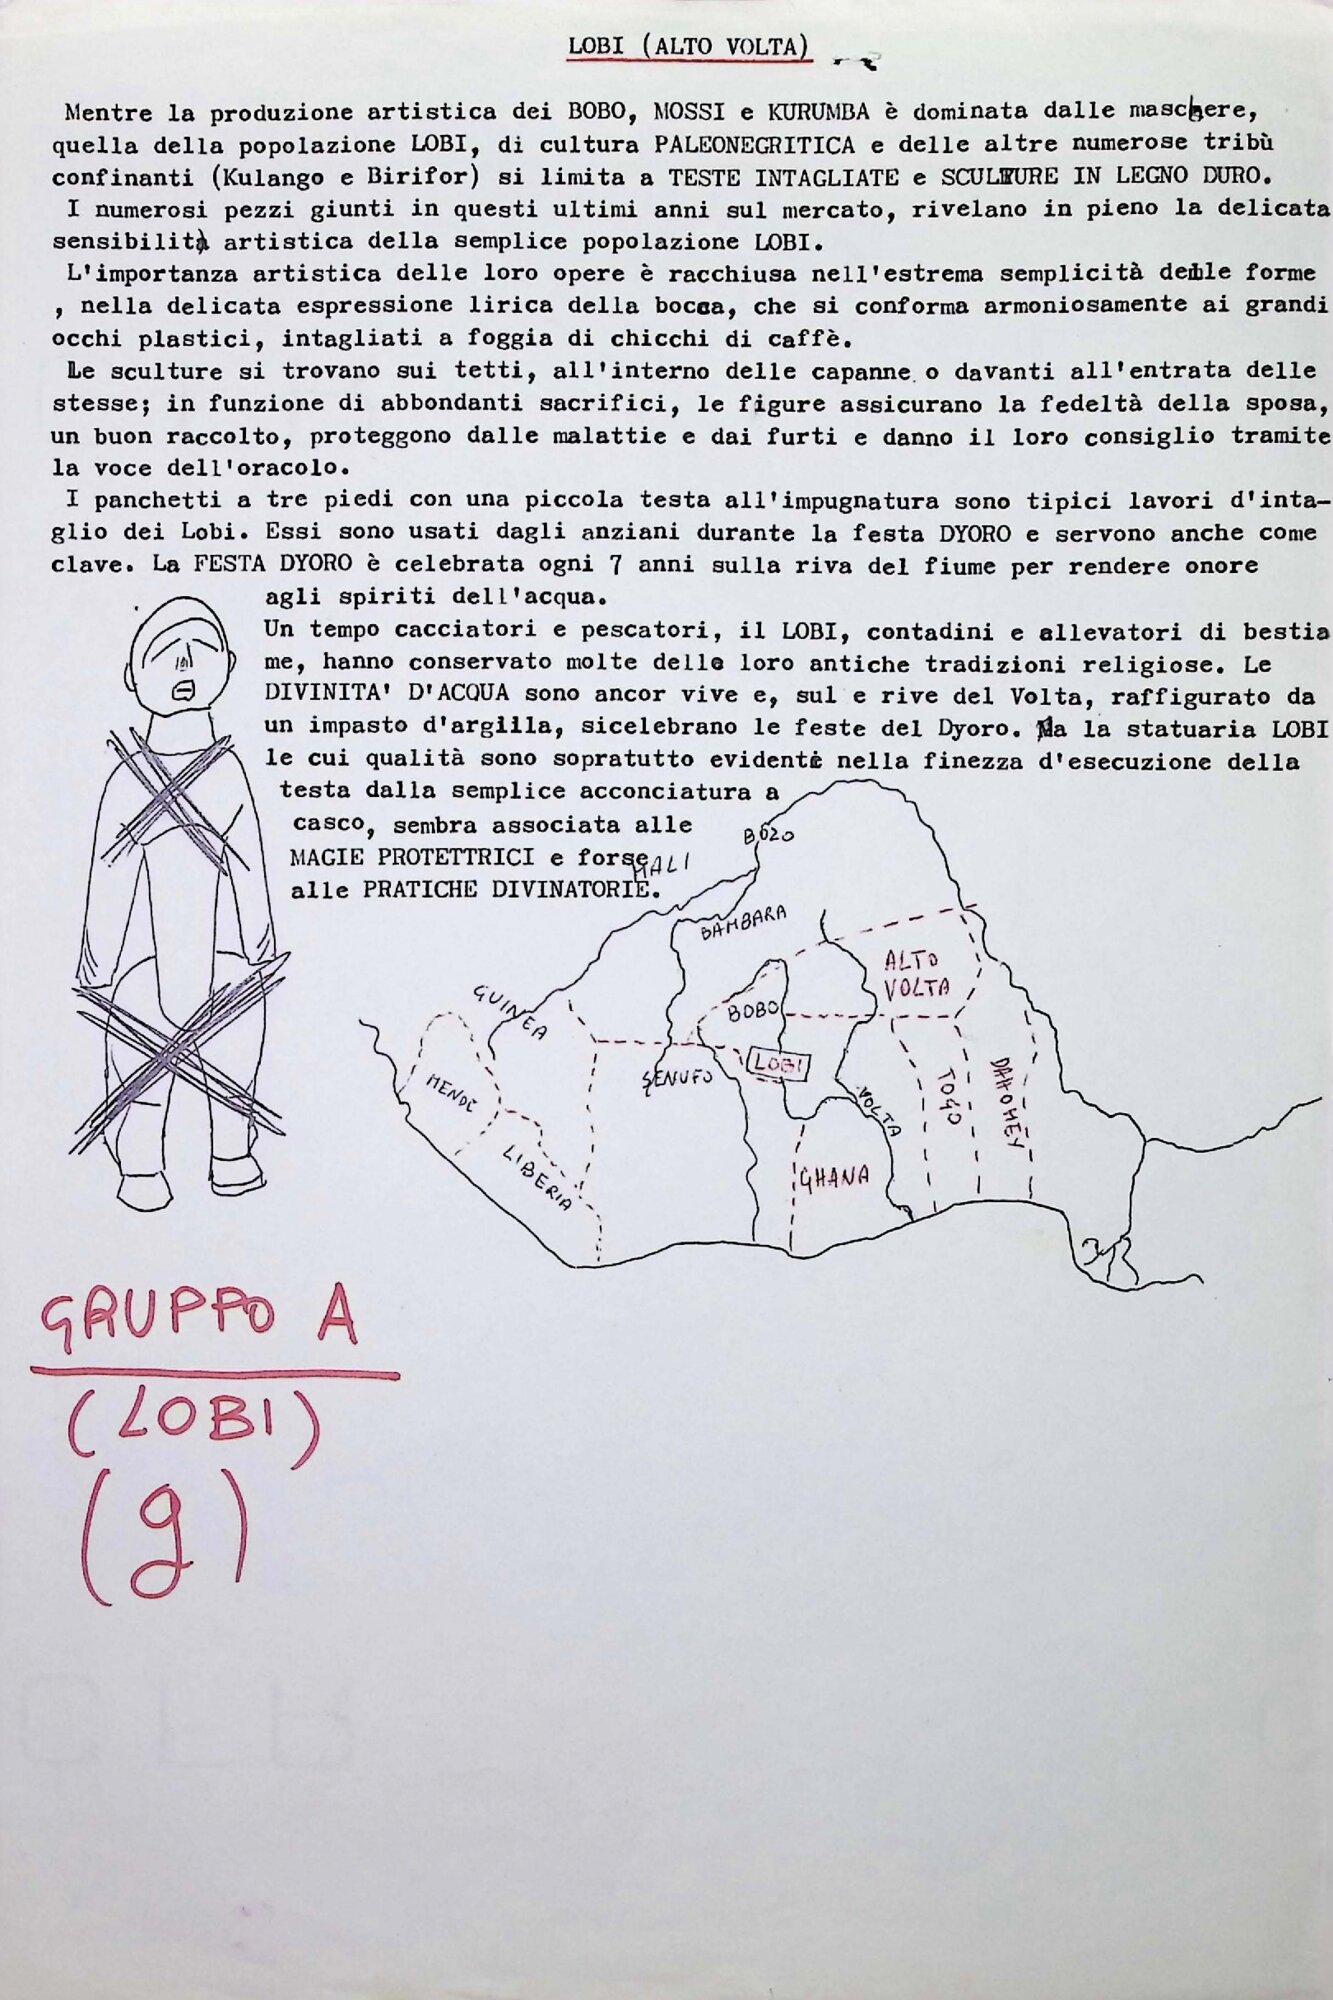 LOBI (ALTO VOLTA)
Mentre la produzione artistica dei BOBO, MOSSI e KURUMBA è dominata dalle maschere,
quella della popolazione LOBI, di cultura PALEONEGRITICA e delle altre numerose tribù
confinanti (Kulango e Birifor) si limita a TESTE INTAGLIATE e SCULTURE IN LEGNO DURO.
I numerosi pezzi giunti in questi ultimi anni sul mercato, rivelano in pieno la delicata
sensibilità artistica della semplice popolazione LOBI.
L'importanza artistica delle loro opere è racchiusa nell'estrema semplicità delle forme
, nella delicata espressione lirica della bocca, che si conforma armoniosamente ai grandi
occhi plastici, intagliati a foggia di chicchi di caffè.
Le sculture si trovano sui tetti, all'interno delle capanne o davanti all'entrata delle
stesse; in funzione di abbondanti sacrifici, le figure assicurano la fedeltà della sposa,
un buon raccolto, proteggono dalle malattie e dai furti e danno il loro consiglio tramite
la voce dell'oracolo.
I panchetti a tre piedi con una piccola testa all'impugnatura sono tipici lavori d'inta-
glio dei Lobi. Essi sono usati dagli anziani durante la festa DYORO e servono anche come
clave. La FESTA DYORO è celebrata ogni 7 anni sulla riva del fiume per rendere onore
agli spiriti dell'acqua.
Un tempo cacciatori e pescatori, il LOBI, contadini e allevatori di bestia
me, hanno conservato molte delle loro antiche tradizioni religiose. Le
DIVINITA' D'ACQUA sono ancor vive e, sul e rive del Volta, raffigurato da
un impasto d'argilla, sicelebrano le feste del Dyoro. Ma la statuaria LOBI
le cui qualità sono sopratutto evidenti nella finezza d'esecuzione della
testa dalla semplice acconciatura a
casco, sembra associata alle
MAGIE PROTETTRICI e forse
alle PRATICHE DIVINATORIE.
BOZO
MALI
BAMBARA
ALTO
VOLTA
GUINEA
BOBO
LOBI
SENUFO
MENDE
VOLTA
TOGO
DAHOMEY
LIBERIA
GHANA
GRUPPO A
(LOBI)
(g)